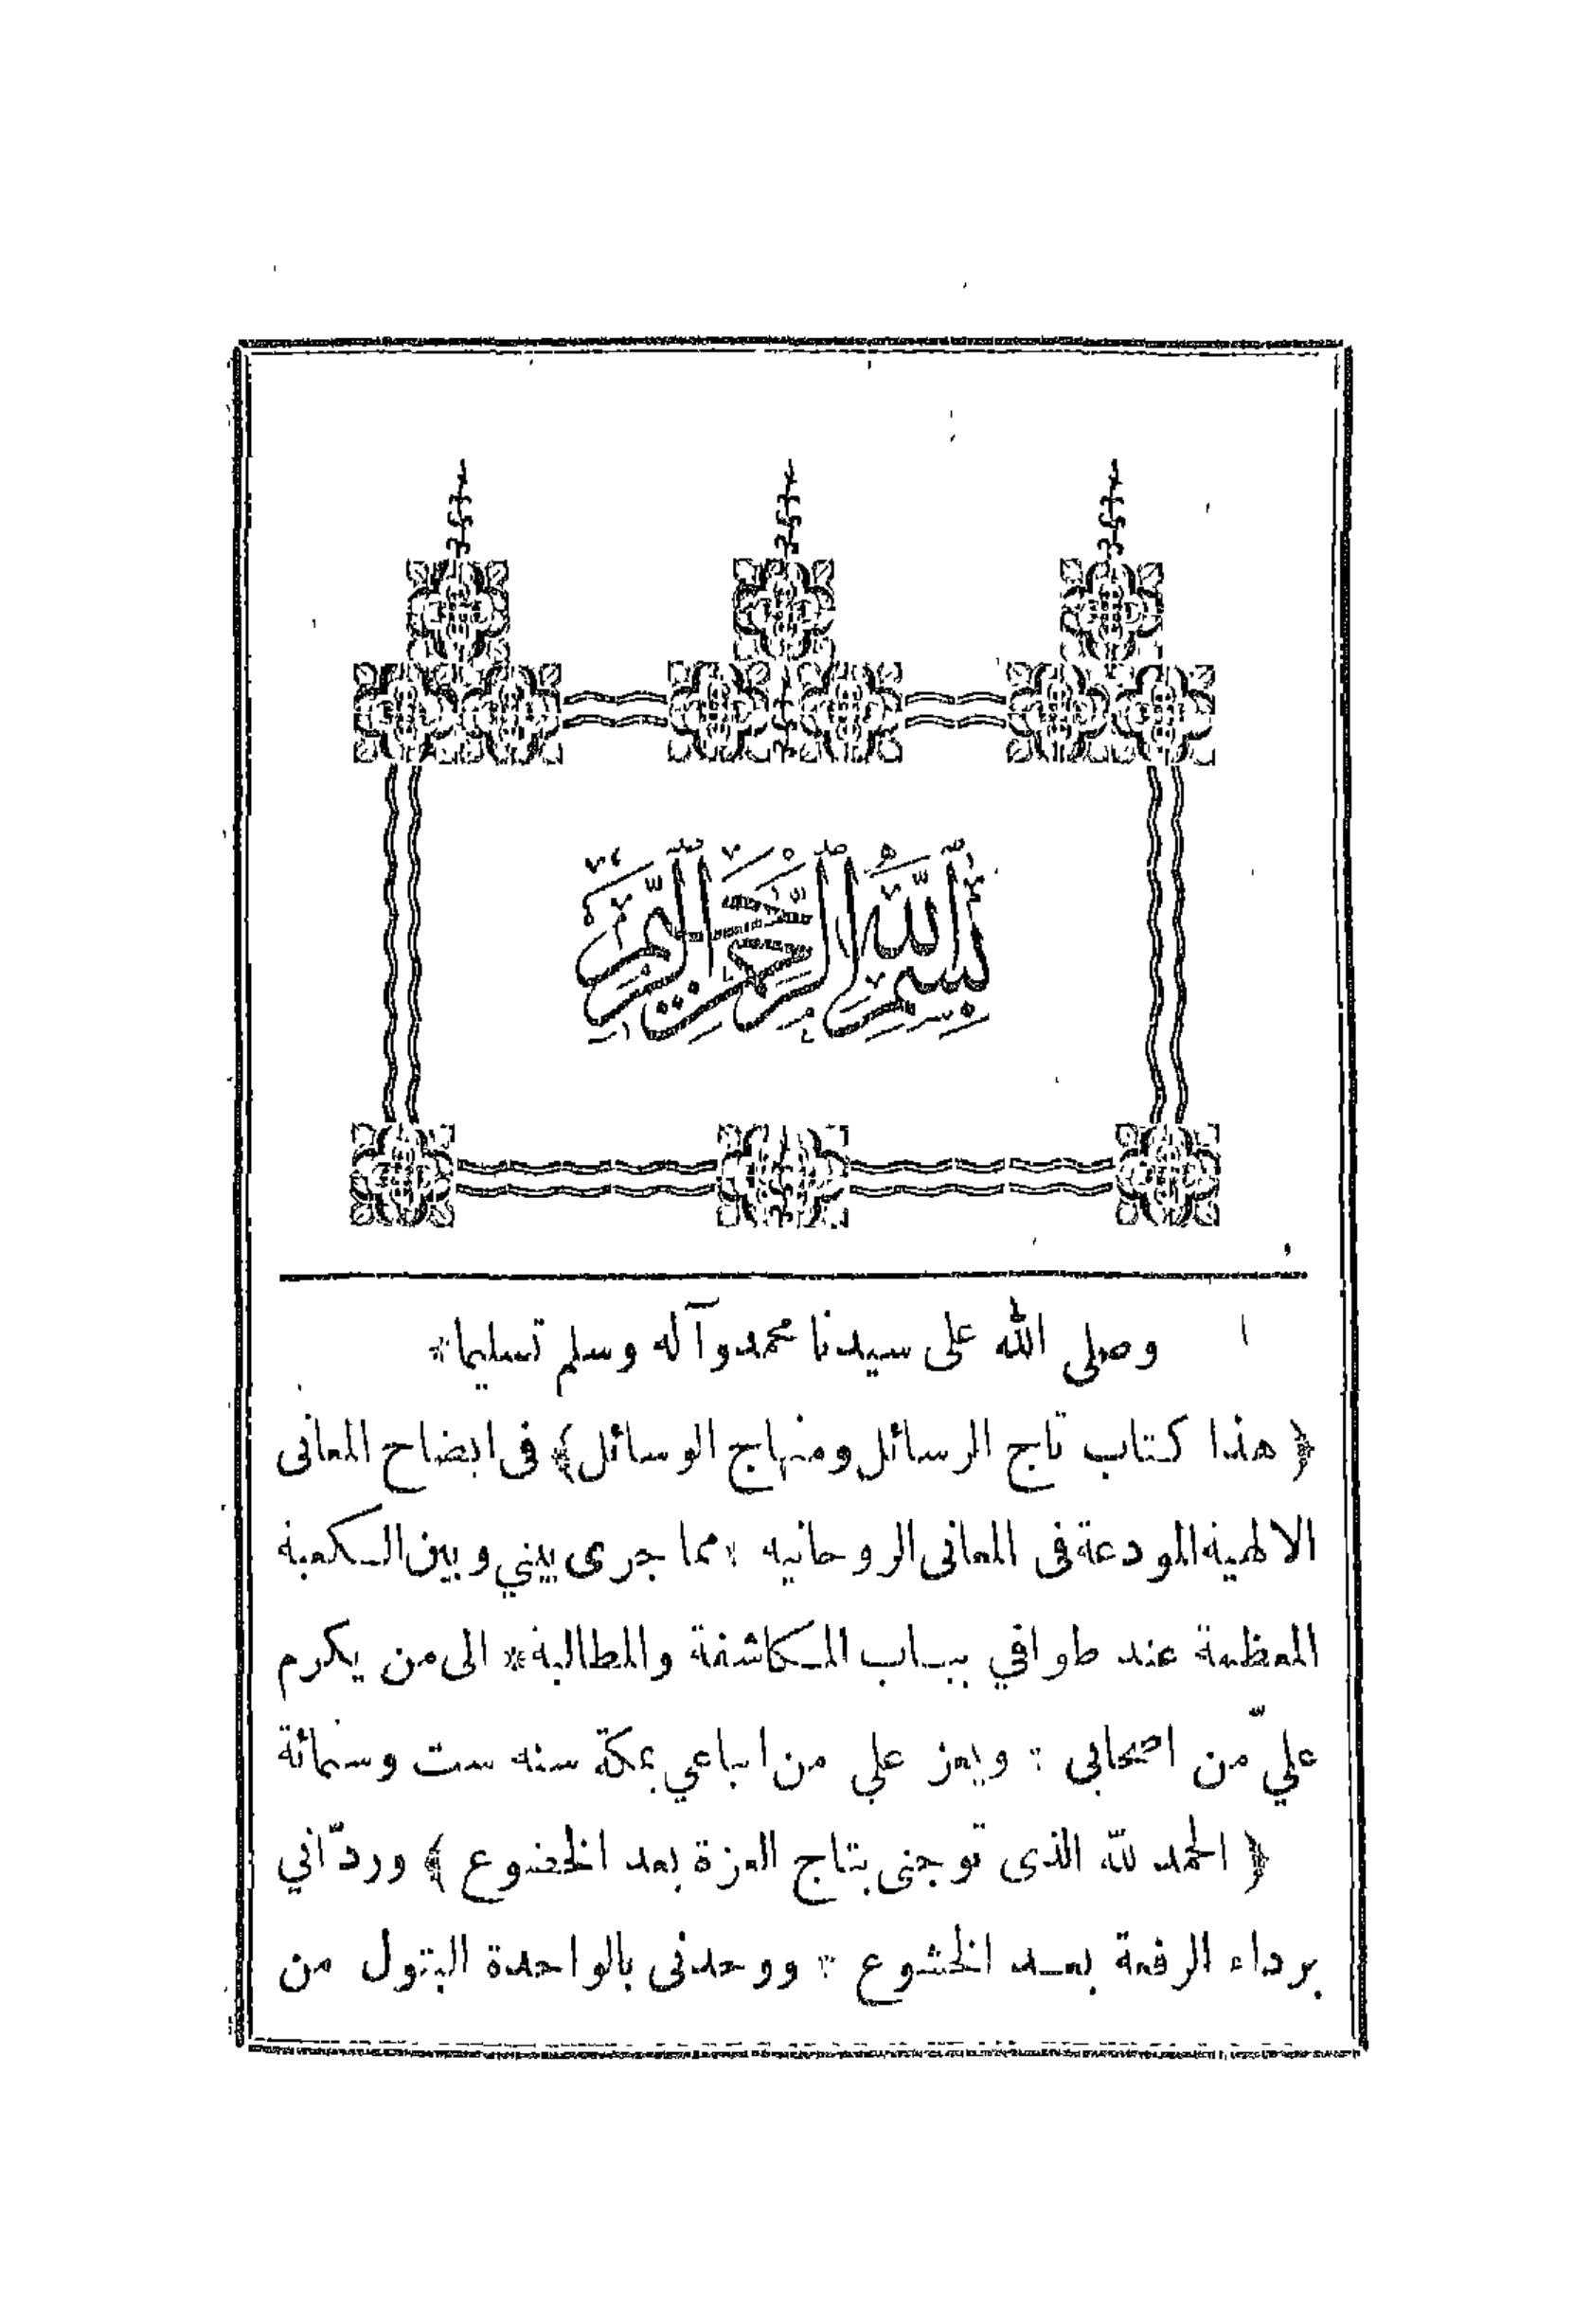 بسم الله الرحمن الرحيم
وصلى الله على سيدنا محمد وآله وسلم تسليما*
﴿ هذا كتاب تاج الرسائل ومنهاج الوسائل ﴾ فى ايضاح المعانى
الالهية المودعة فى المعانى الروحانيه * مما جرى بيني وبين الكعبة
المعظمة عند طوافي بباب المكاشفة والمطالبة * الى من يكرم
عليّ من اصحابى * ويعز علي من اتباعي بمكة سنه ست وستمائة
﴿ الحمد لله الذى توجنى بتاج العزة بعد الخضوع ﴾ وردّاني
برداء الرفعة بعد الخشوع * ووحدنى بالواحدة البتول من